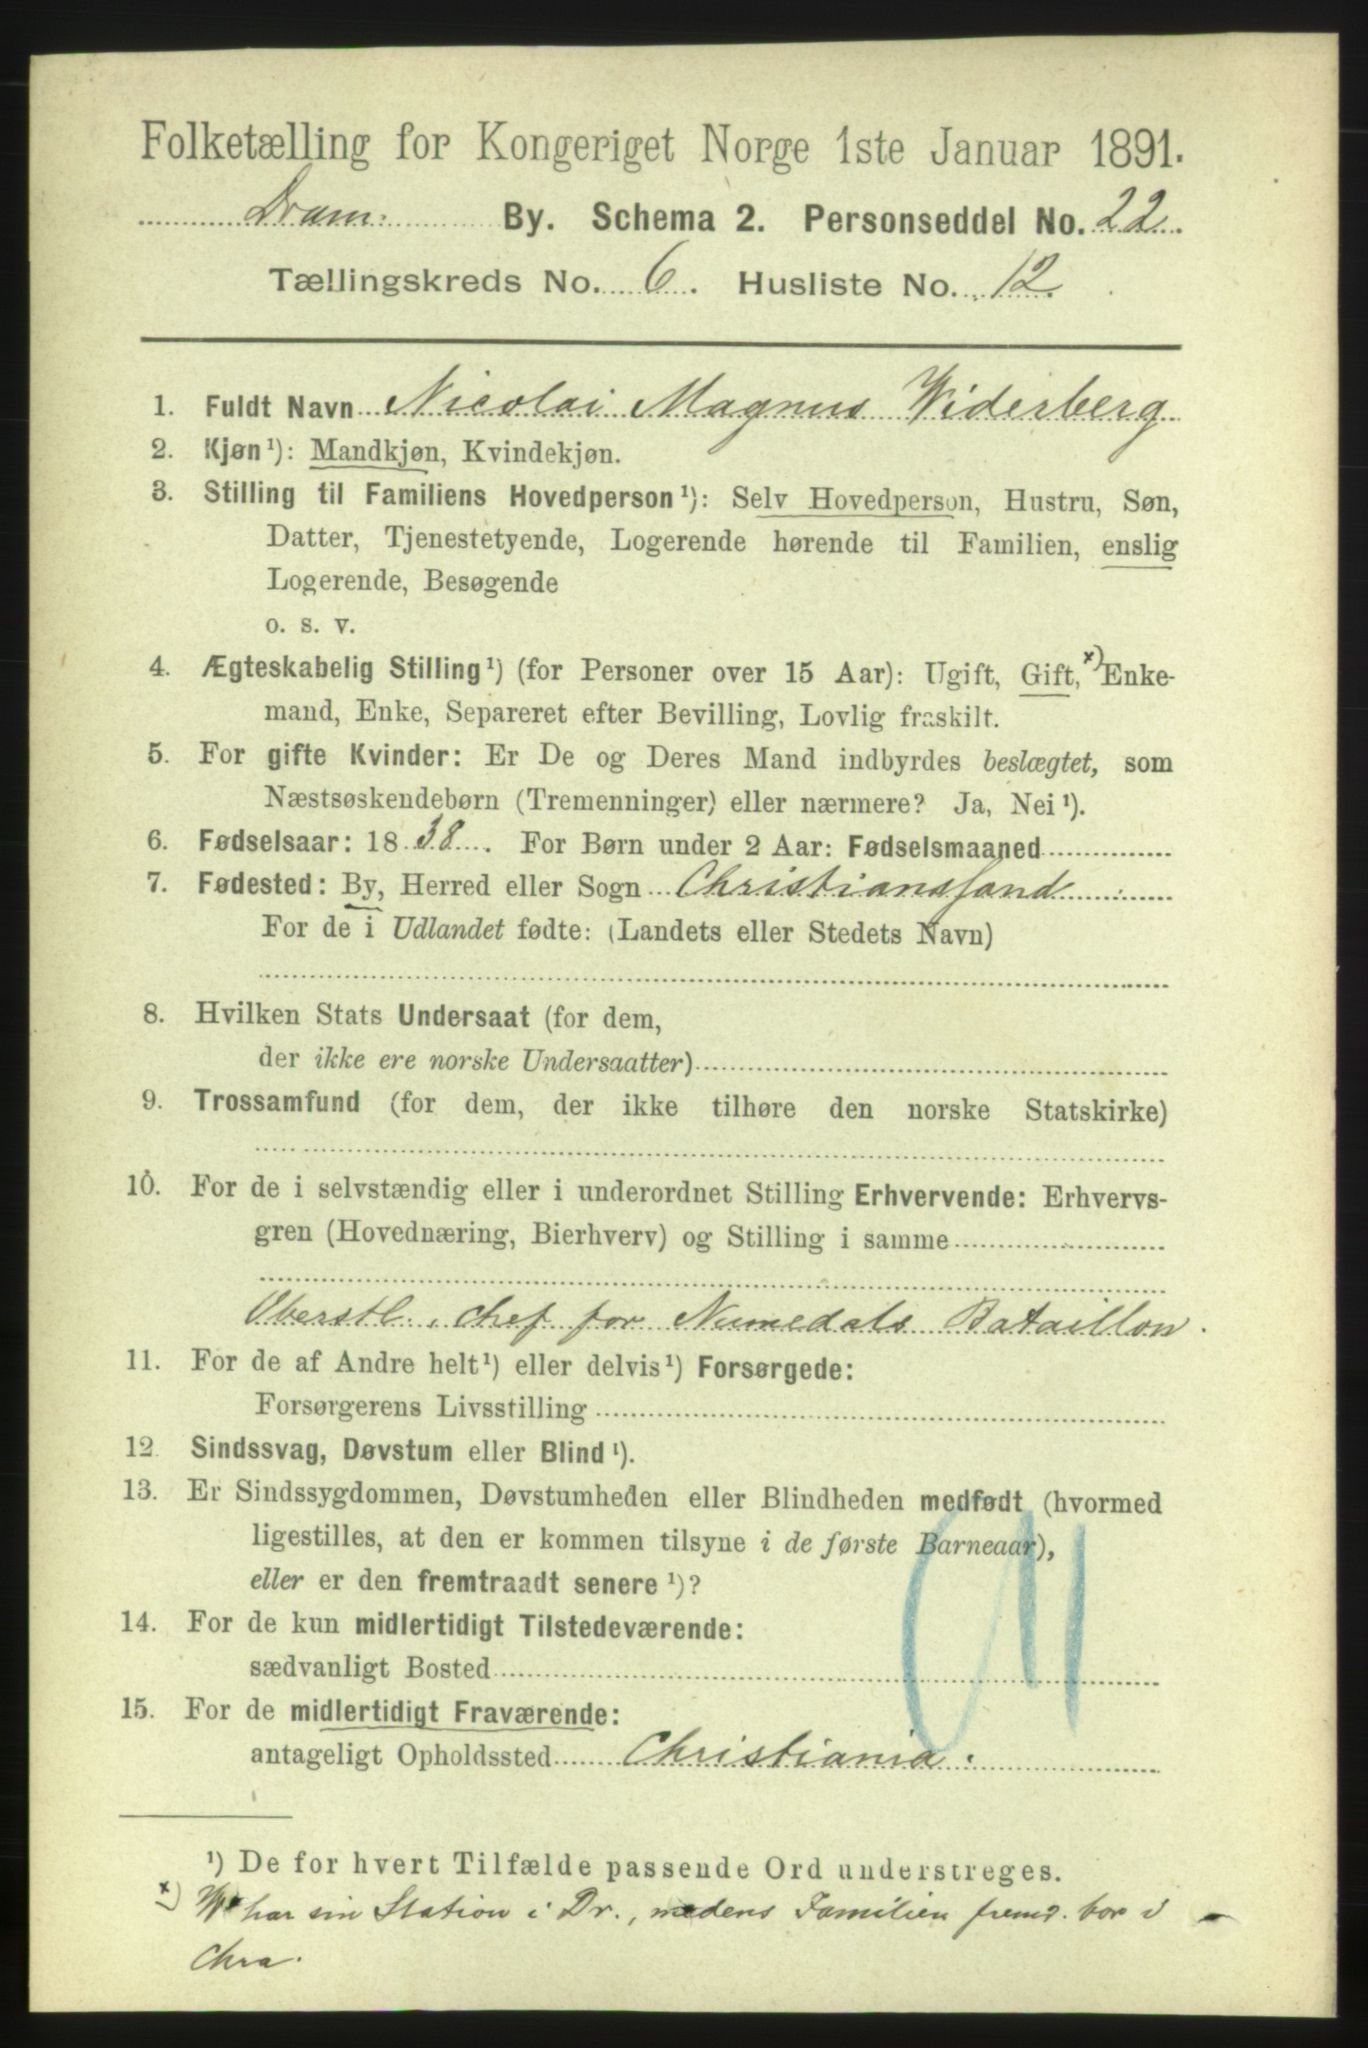 Folketælling for Kongeriget Norge 1ste Januar 1891.
Dram. By. Schema 2. Personseddel No. 22.
Tællingskreds No. 6. Husliste No. 12.
1. Fuldt Navn Nicolai Magnus Widerberg
2. Kjøn ¹): Mandkjøn, Kvindekjøn.
3. Stilling til Familiens Hovedperson ¹): Selv Hovedperson, Hustru, Søn,
Datter, Tjenestetyende, Logerende hørende til Familien, enslig
Logerende, Besøgende
o. s. v.
4. Ægteskabelig Stilling ¹) (for Personer over 15 Aar): Ugift, Gift, ˣ) Enke-
mand, Enke, Separeret efter Bevilling, Lovlig fraskilt.
5. For gifte Kvinder: Er De og Deres Mand indbyrdes beslægtet, som
Næstsøskendebørn (Tremenninger) eller nærmere? Ja, Nei ¹).
6. Fødselsaar: 1838. For Børn under 2 Aar: Fødselsmaaned
7. Fødested: By, Herred eller Sogn Christianssand
For de i Udlandet fødte: (Landets eller Stedets Navn)
8. Hvilken Stats Undersaat (for dem,
der ikke ere norske Undersaatter)
9. Trossamfund (for dem, der ikke tilhøre den norske Statskirke)
10. For de i selvstændig eller i underordnet Stilling Erhvervende: Erhvervs-
gren (Hovednæring, Bierhverv) og Stilling i samme
Oberstl., chef for Numedals Bataillon.
11. For de af Andre helt ¹) eller delvis ¹) Forsørgede:
Forsørgerens Livsstilling
12. Sindssvag, Døvstum eller Blind ¹).
13. Er Sindssygdommen, Døvstumheden eller Blindheden medfødt (hvormed
ligestilles, at den er kommen tilsyne i de første Barneaar),
eller er den fremtraadt senere ¹)?
14. For de kun midlertidigt Tilstedeværende:
sædvanligt Bosted
15. For de midlertidigt Fraværende:
antageligt Opholdssted Christiania.
¹) De for hvert Tilfælde passende Ord understreges.
ˣ) W har sin Station i Dr., medens Familien bor i
Chra.